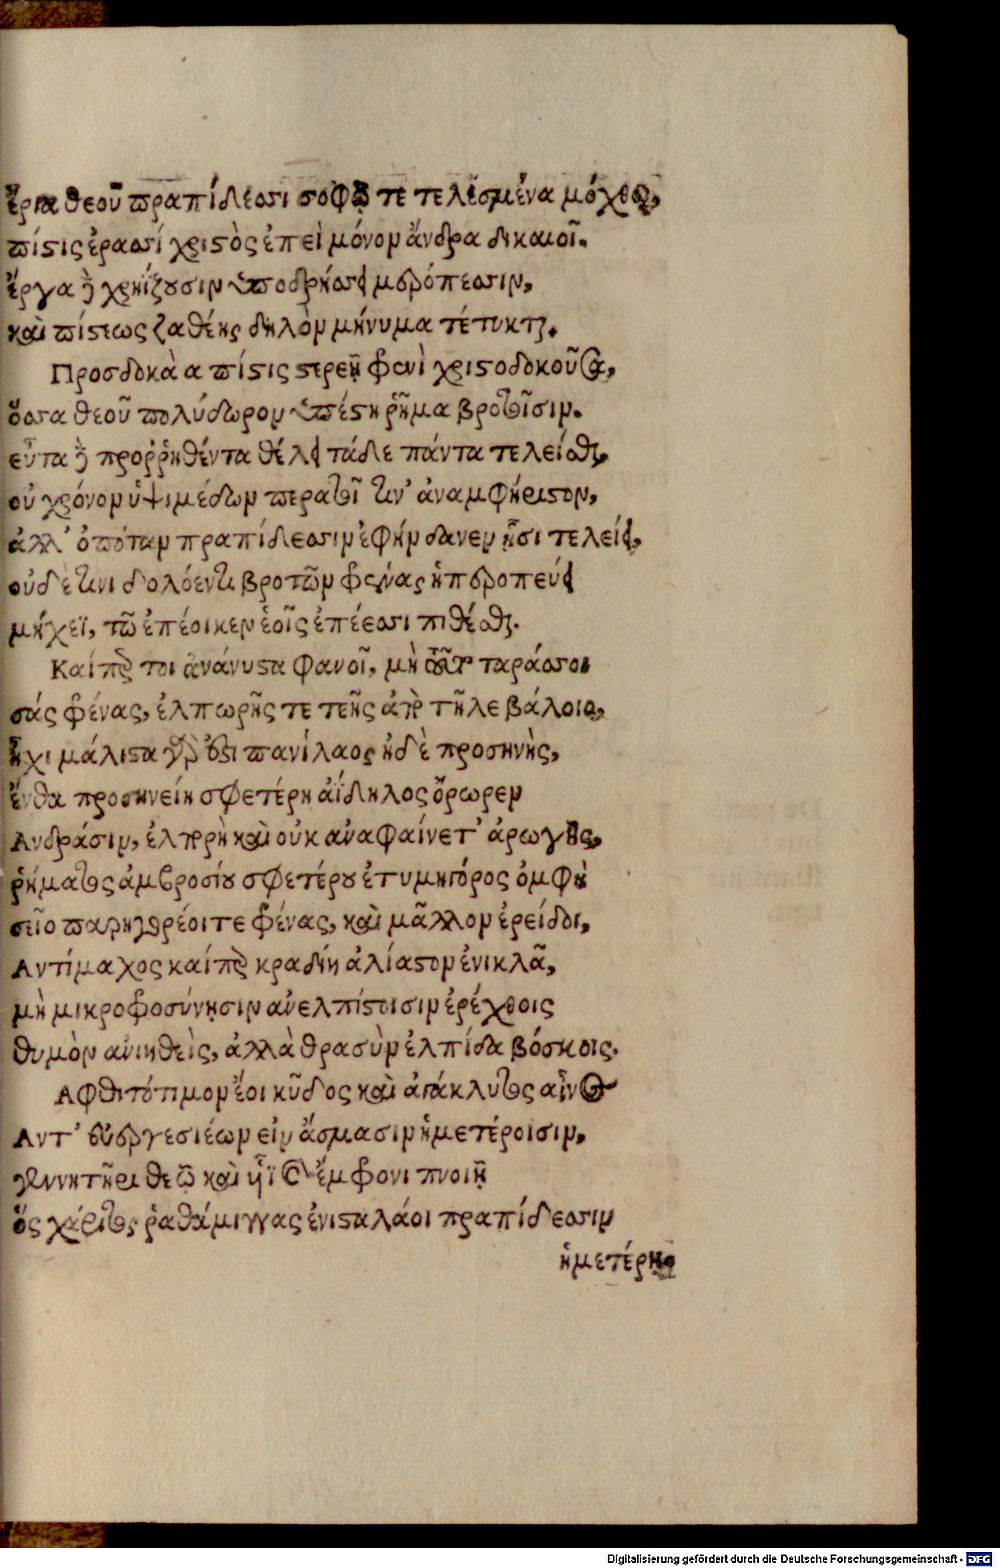 ἔργα θεοῦ πραπίδεσσι σοφῶ τε τελεσμένα μόχθῳ,
πίστις ἐρασσί χριστὸς ἐπεὶ μόνον ἄνδρα δικαιοῖ.
ἔργα δὲ χρηΐζουσιν ὑποδρήσσει μερόπεσσιν,
καὶ πίστεως ζαθέης δηλὸν μήνυμα τέτυκται.
Προσδοκὰα πίστις στρεῇ φρενὶ χριστοδοκοῦσα,
ὅσσα θεοῦ πολύδωρον ὑπέστη ῥῆμα βροτοῖσιν.
εὖτα δὲ προῤῥηθέντα θέλει τάδε πάντα τελεῖσθαι,
οὐ χρόνον ὑψιμέδων περατοῖ τιν' ἀναμφήριστον,
ἀλλ' ὁπόταν πραπίδεσσιν ἐφήνδανεν ᾗσι τελείει,
οὐδὲ τινὶ δολόεντι βροτῶν φρένας ἠπεροπεύει
μήχεϊ, τῶ ἐπέοικεν ἑοῖς ἐπέεσσι πιθέσθαι.
Καίπερ τοι ἀνάνυστα φανοῖ, μὴ ταράσσοι
σάς φρένας, ἐλπωρῆς τε τεῆς ἀπὸ τῆλε βάλοιο,
ἧχι μάλιστα γὰρ ἐστι πανίλαος ἠδὲ προσηνὴς,
ἔνθα προσηνείη σφετέρη ἀΐδηλος ὄρωρεν
Ανδράσιν, ἐλπρὴ καὶ οὐκ ἀναφαίνετ' ἀρωγῆς,
ῥήματος ἀμβροσίου σφετέρου ἐτυμηγόρος ὀμφὴ
σεῖο φρένας, καὶ μᾶλλον ἐρείδοι,
Αντίμαχος καίπερ κραδίη ἀλίαστον ἐνικλᾶ,
μὴ μικροφροσύνῃσιν ἀνελπίστοισιν ἐρέχθοις
θυμὸν ἀνιηθεὶς, ἀλλὰ θρασὺν ἐλπίδα βόσκοις.
Αφθιτότιμον ἔοι κῦδος καὶ ἀγάκλυτος αἶνος
Αντ' εὐεργεσιέων εἰν ᾄσμασιν ἡμετέροισιν,
γεννητῆρι θεῷ καὶ υἷϊ ἔμφρονι πνοιῇ
ὅς χάριτος ῥαθάμιγγας ἐνισταλάοι πραπίδεσσιν
ἡμετέρῃς
Digitalisierung gefördert durch die Deutsche Forschungsgemeinschaft - DFG